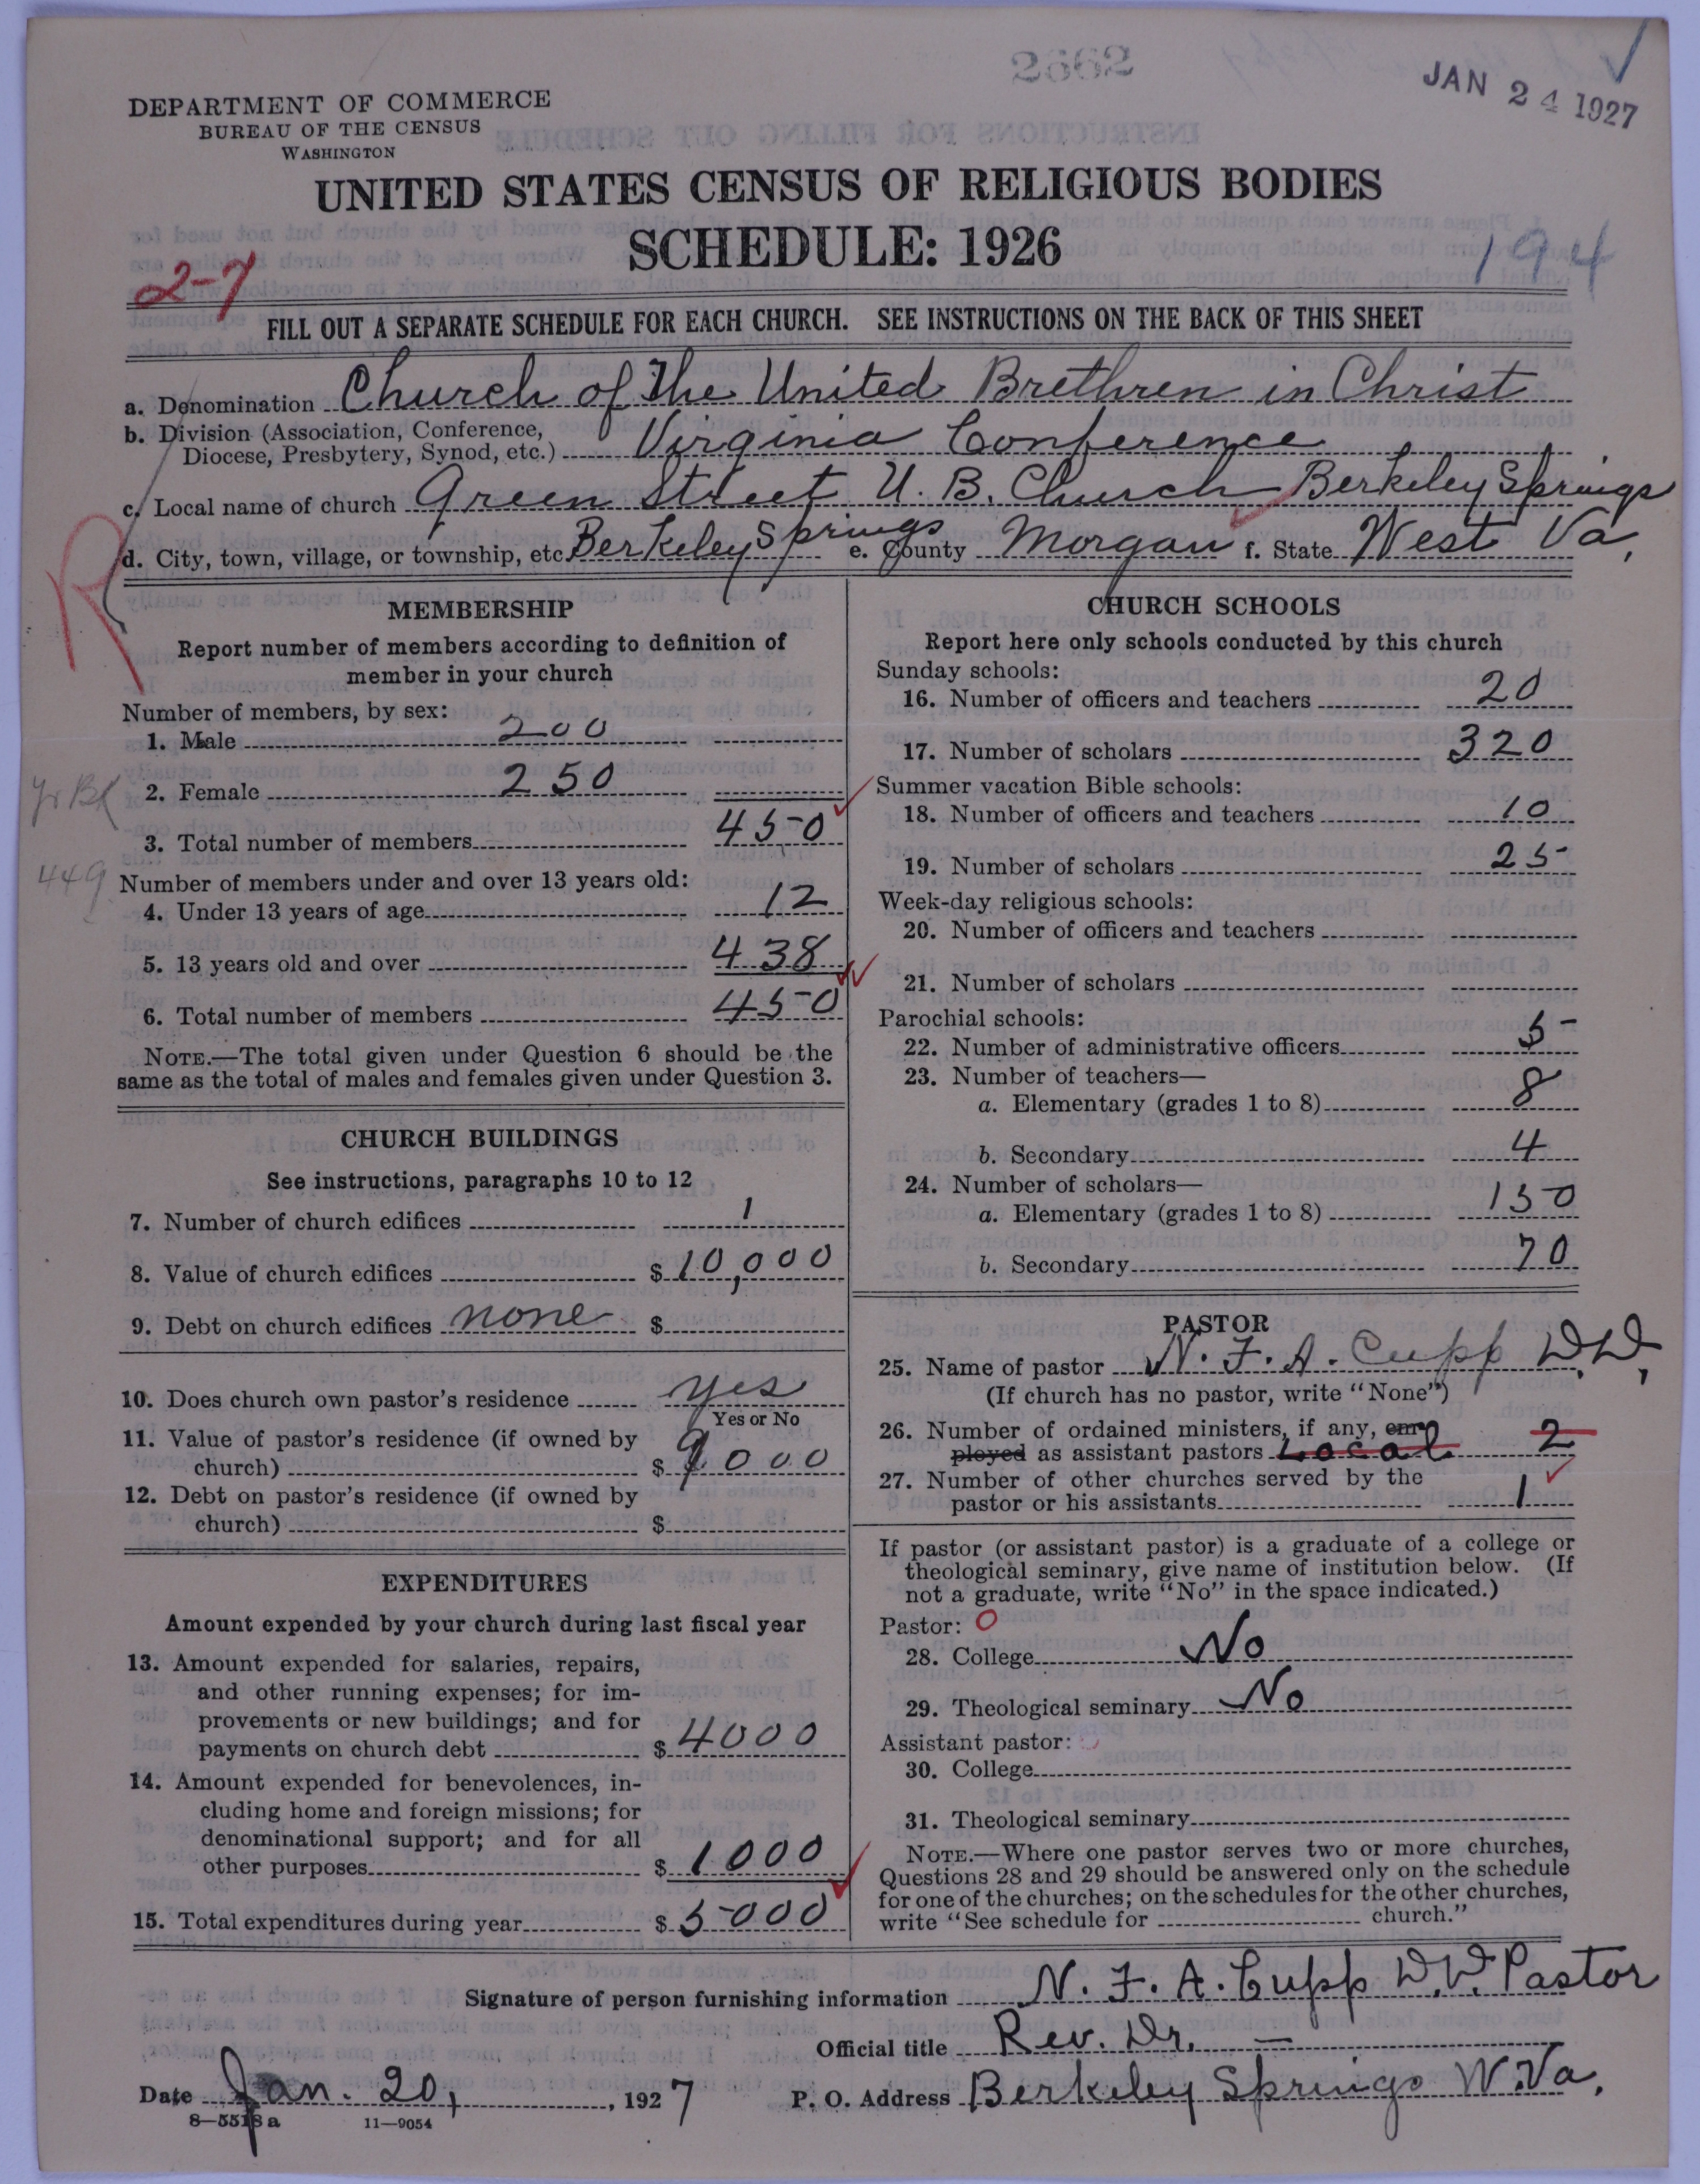 2662
JAN 24 1927
DEPARTMENT OF COMMERCE
BUREAU OF THE CENSUS
WASHINGTON
UNITED STATES CENSUS OF RELIGIOUS BODIES
SCHEDULE: 1926
194
2-7
FILL OUT A SEPARATE SCHEDULE FOR EACH CHURCH. SEE INSTRUCTIONS ON THE BACK OF THIS SHEET
a. Denomination Church of The United Brethren in Christ
b. Division (Association, Conference,
Diocese, Presbytery, Synod, etc.) Virginia Conference
c. Local name of church Green Street U. B. Church Berkeley Springs
d. City, town, village, or township, etc. Berkeley Springs e. County Morgan f. State West Va.
R
MEMBERSHIP
Report number of members according to definition of
member in your church
Number of members, by sex:
1. Male 200
2. Female 250
Yr Bk
3. Total number of members 450
449
Number of members under and over 13 years old:
4. Under 13 years of age 12
5. 13 years old and over 438
6. Total number of members 450
NOTE.—The total given under Question 6 should be the
same as the total of males and females given under Question 3.
CHURCH BUILDINGS
See instructions, paragraphs 10 to 12
7. Number of church edifices 1
8. Value of church edifices $ 10,000
9. Debt on church edifices none $
10. Does church own pastor's residence yes
Yes or No
11. Value of pastor's residence (if owned by
church) $ 9000
12. Debt on pastor's residence (if owned by
church) $
EXPENDITURES
Amount expended by your church during last fiscal year
13. Amount expended for salaries, repairs,
and other running expenses; for im-
provements or new buildings; and for
payments on church debt $ 4000
14. Amount expended for benevolences, in-
cluding home and foreign missions; for
denominational support; and for all
other purposes $ 1000
15. Total expenditures during year $ 5000
CHURCH SCHOOLS
Report here only schools conducted by this church
Sunday schools:
16. Number of officers and teachers 20
17. Number of scholars 320
Summer vacation Bible schools:
18. Number of officers and teachers 10
19. Number of scholars 25
Week-day religious schools:
20. Number of officers and teachers
21. Number of scholars
Parochial schools:
22. Number of administrative officers 5
23. Number of teachers—
a. Elementary (grades 1 to 8) 8
b. Secondary 4
24. Number of scholars—
a. Elementary (grades 1 to 8) 150
b. Secondary 70
PASTOR
25. Name of pastor N. F. A. Cupp D.D.
(If church has no pastor, write "None")
26. Number of ordained ministers, if any, em-
ployed as assistant pastors Local 2
27. Number of other churches served by the
pastor or his assistants 1
If pastor (or assistant pastor) is a graduate of a college or
theological seminary, give name of institution below. (If
not a graduate, write "No" in the space indicated.)
Pastor: O
28. College No
29. Theological seminary No
Assistant pastor:
30. College
31. Theological seminary
NOTE.—Where one pastor serves two or more churches,
Questions 28 and 29 should be answered only on the schedule
for one of the churches; on the schedules for the other churches,
write "See schedule for church."
Signature of person furnishing information N. F. A. Cupp D.D. Pastor
Official title Rev. Dr. —
Date Jan. 20, 1927 P. O. Address Berkeley Springs W. Va.
8—5518 a 11—9054